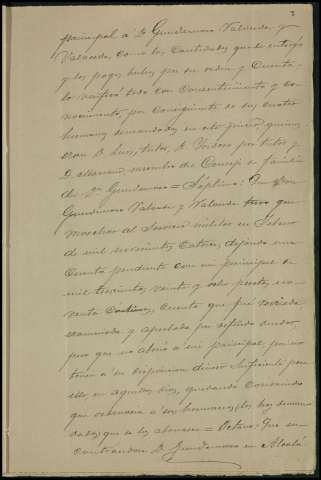 2
principal á Dn Gumdersno Valverde y
Valverde, como las cantidades que le entregó
y los pagos hechos por su orden y cuenta
lo verificó todo con consentimiento y co-
nocimiento, por consiguiente de sus cuatro
hermanos demandados en este juicio, quienes
eran D. Luis, tutor, D. Isidoro pro tutor y
D. Mariano miembro del Consejo de familia
de Dn = Séptimo: Que Don
Valverde y Valverde tuvo que
marchar al Servicio militar en Febrero
de mil novecientos catorce, dejando una
cuenta pendiente con mi principal de
mil trescientas veinte y ocho pesetas, cua-
renta céntimos, cuenta que fué revisada
examinada y aprobada por referido deudor,
pero que no abonó á mi principal, por no
tener á su disposicion dinero suficiente para
ello en aquellos dias, quedando convenido
que ordenaria á sus hermanos, los hoy deman-
dados, que se los abonasen = Octavo: Que en-
contrandose D. en Alcalá